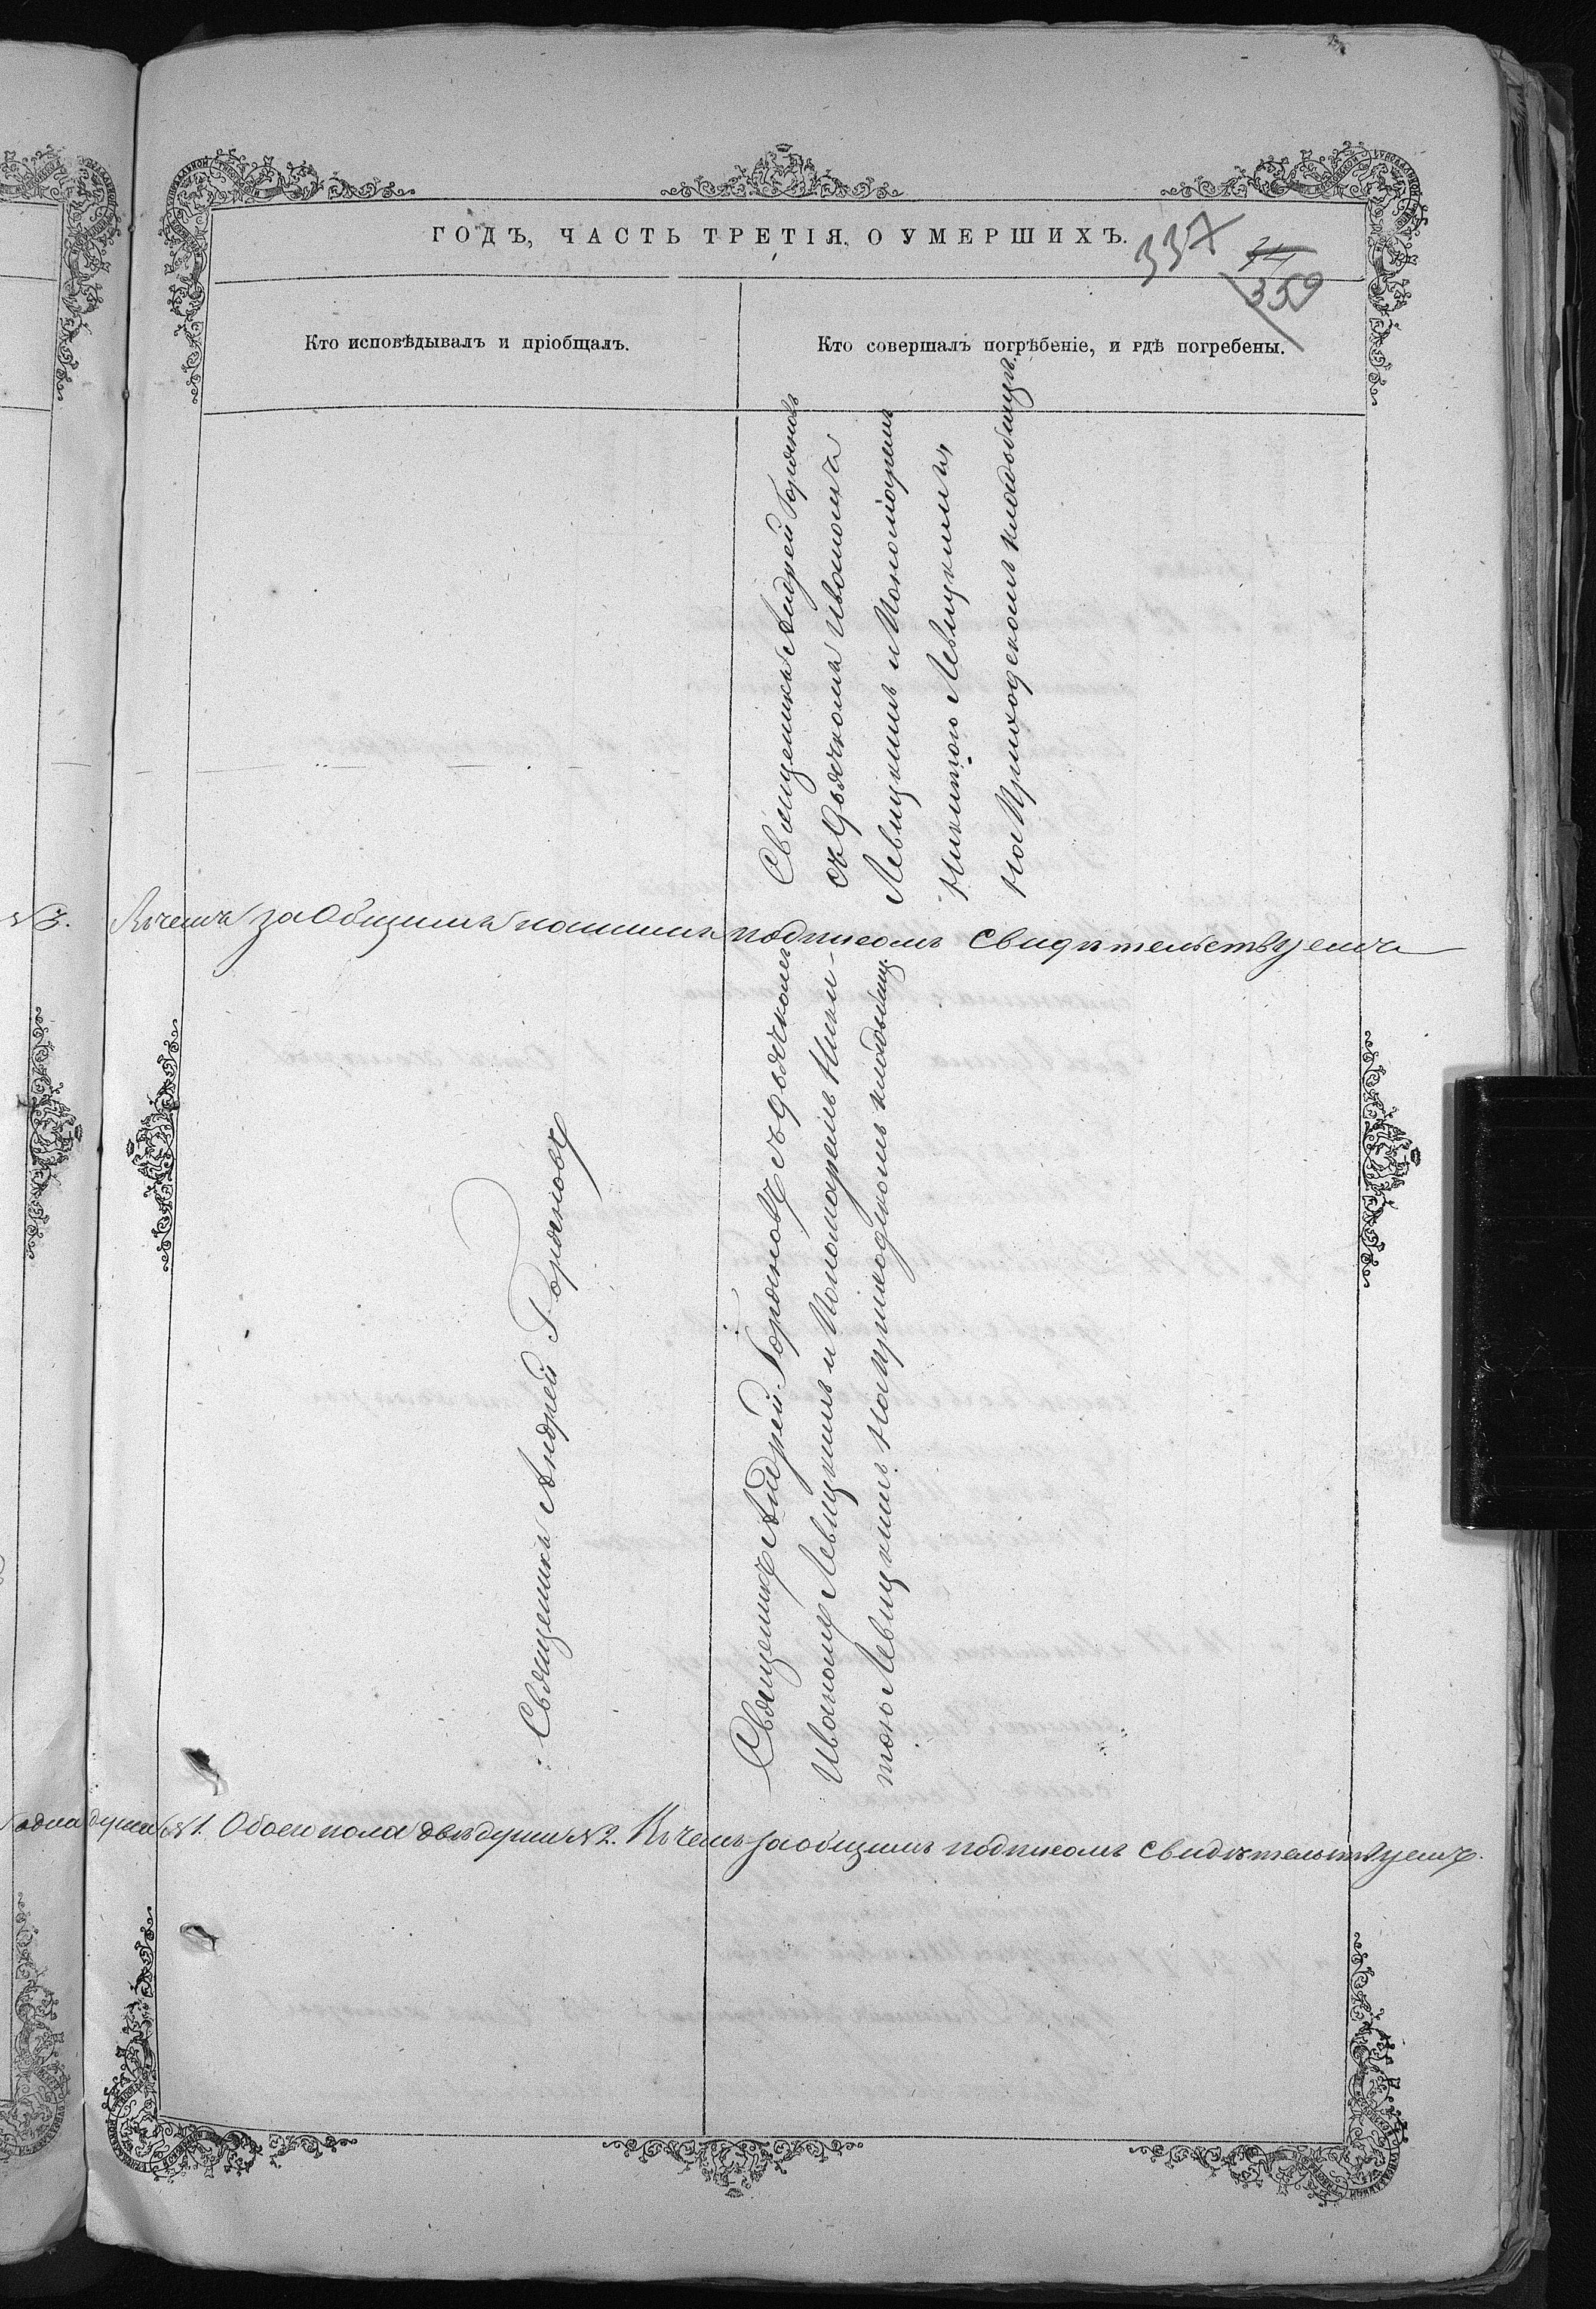 ГОДЪ, ЧАСТЬ ТРЕТІЯ, О УМЕРШИХЪ.
337
359
Кто исповѣдывалъ и пріобщалъ.
Кто совершалъ погрѣбеніе, и гдѣ погребены.
Священникъ Андрей Горяновъ
съ дьячкомъ Иваномъ
Левицкимъ и Пономаремъ
Никитою Левицкимъ,
на Приходскомъ кладбищѣ.
№ 3. Въ чемъ за общимъ нашимъ подписомъ свидѣтельствуемъ
Священникъ Андрей Горяновъ
Священникъ Андрей Горяновъ съ дьячкомъ
Иваномъ Левицкимъ и Пономаремъ Ники-
тою Левицкимъ на приходскомъ кладбищѣ.
одна душа № 1. Обоего пола двѣ души № 2. Въ чемъ за общимъ подписомъ свидѣтельствуемъ.